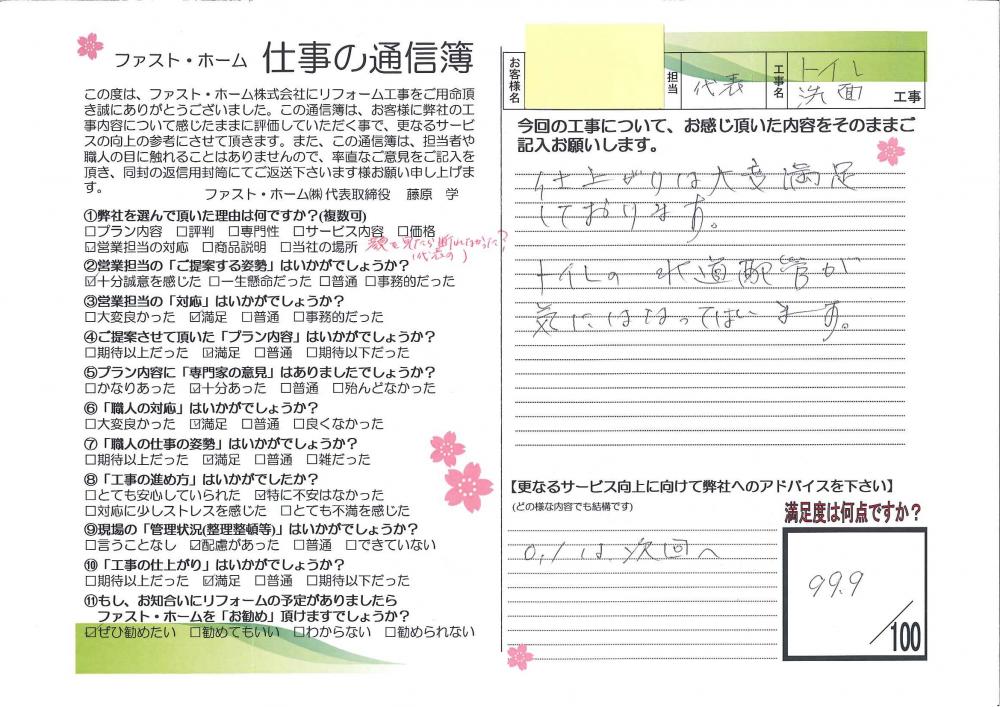 ファスト・ホーム 仕事の通信簿
この度は、ファスト・ホーム株式会社にリフォーム工事をご用命頂
き誠にありがとうございました。この通信簿は、お客様に弊社の工
事内容について感じたままに評価していただく事で、更なるサービ
スの向上の参考にさせて頂きます。また、この通信簿は、担当者や
職人の目に触れることはありませんので、率直なご意見をご記入を
頂き、同封の返信用封筒にてご返送下さいます様お願い申し上げま
す。
ファスト・ホーム㈱ 代表取締役 藤原 学
①弊社を選んで頂いた理由は何ですか？(複数可)
□プラン内容 □評判 □専門性 □サービス内容 □価格
☑営業担当の対応 □商品説明 □当社の場所 顔を見たら断れなかった?
(代表の)
②営業担当の「ご提案する姿勢」はいかがでしょうか？
☑十分誠意を感じた □一生懸命だった □普通 □事務的だった
③営業担当の「対応」はいかがでしょうか？
□大変良かった ☑満足 □普通 □事務的だった
④ご提案させて頂いた「プラン内容」はいかがでしょうか？
□期待以上だった ☑満足 □普通 □期待以下だった
⑤プラン内容に「専門家の意見」はありましたでしょうか？
□かなりあった ☑十分あった □普通 □殆んどなかった
⑥「職人の対応」はいかがでしょうか？
□大変良かった ☑満足 □普通 □良くなかった
⑦「職人の仕事の姿勢」はいかがでしょうか？
□期待以上だった ☑満足 □普通 □雑だった
⑧「工事の進め方」はいかがでしたか？
□とても安心していられた ☑特に不安はなかった
□対応に少しストレスを感じた □とても不満を感じた
⑨現場の「管理状況(整理整頓等)」はいかがでしょうか？
□言うことなし ☑配慮があった □普通 □できていない
⑩「工事の仕上がり」はいかがでしょうか？
□期待以上だった ☑満足 □普通 □期待以下だった
⑪もし、お知合いにリフォームの予定がありましたら
ファスト・ホームを「お勧め」頂けますでしょうか？
☑ぜひ勧めたい □勧めてもいい □わからない □勧められない
お客様名
担当 代表
工事名 トイレ
洗面 工事
今回の工事について、お感じ頂いた内容をそのままご
記入お願いします。
仕上がりは大変満足
しております。
トイレの水道配管が
気にはなってはいます。
【更なるサービス向上に向けて弊社へのアドバイスを下さい】
(どの様な内容でも結構です)
0.1は次回へ
満足度は何点ですか？
99.9
/100